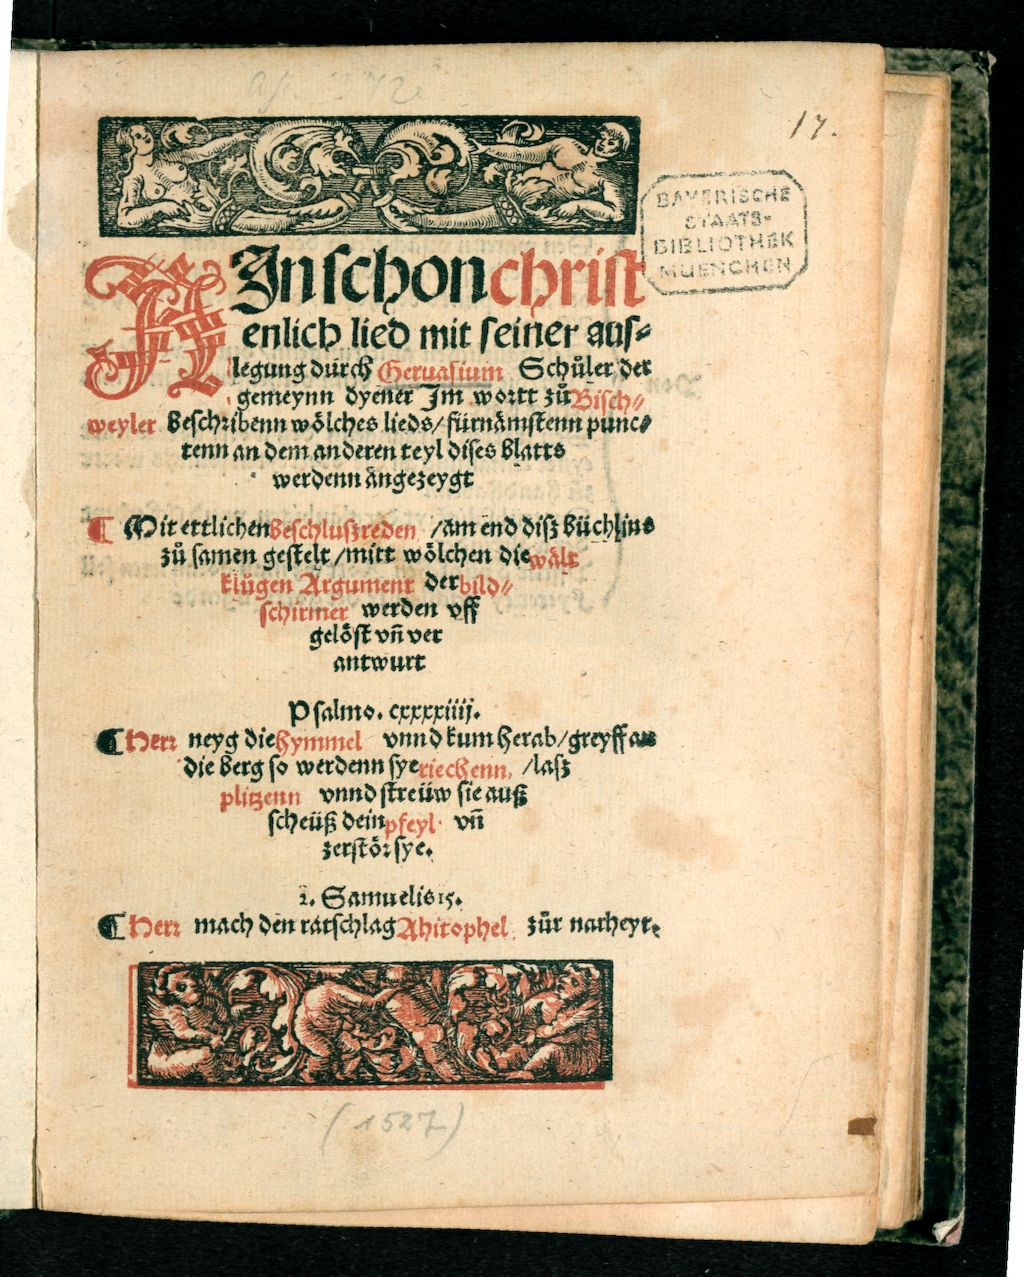 17.
BAYERISCHE
STAATS-
BIBLIOTHEK
MUENCHEN
EJn schon christ
enlich lied mit seiner aus⸗
legung durch Geruasium Schuͤler der
gemeynn dyener Jm wortt zuͦ Bisch⸗
weyler beschribenn woͤlches lieds/ fürnaͤmstenn punc⸗
tenn an dem anderen teyl dises blatts
werdenn angezeygt
¶ Mit ettlichen beschlusz reden /am end disz buͤchlins
zuͦ samen gestelt /mitt woͤlchen die waͤlt
kluͦgen Argument der bild⸗
schirmer werden vff
geloͤst vñ ver
antwurt
Psalmo. cxxxxiiij.
¶ Herr neyg die hymmel vnnd kum herab/greyff an
die berg so werdenn sye riechenn, /lasz
plitzenn vnnd streüw sie auß
scheüß dein pfeyl vñ
zerstoͤr sye.
2. Samuelis 15.
¶ Herr mach den ratschlag Ahitophel zuͦr narheyt.
(1527)